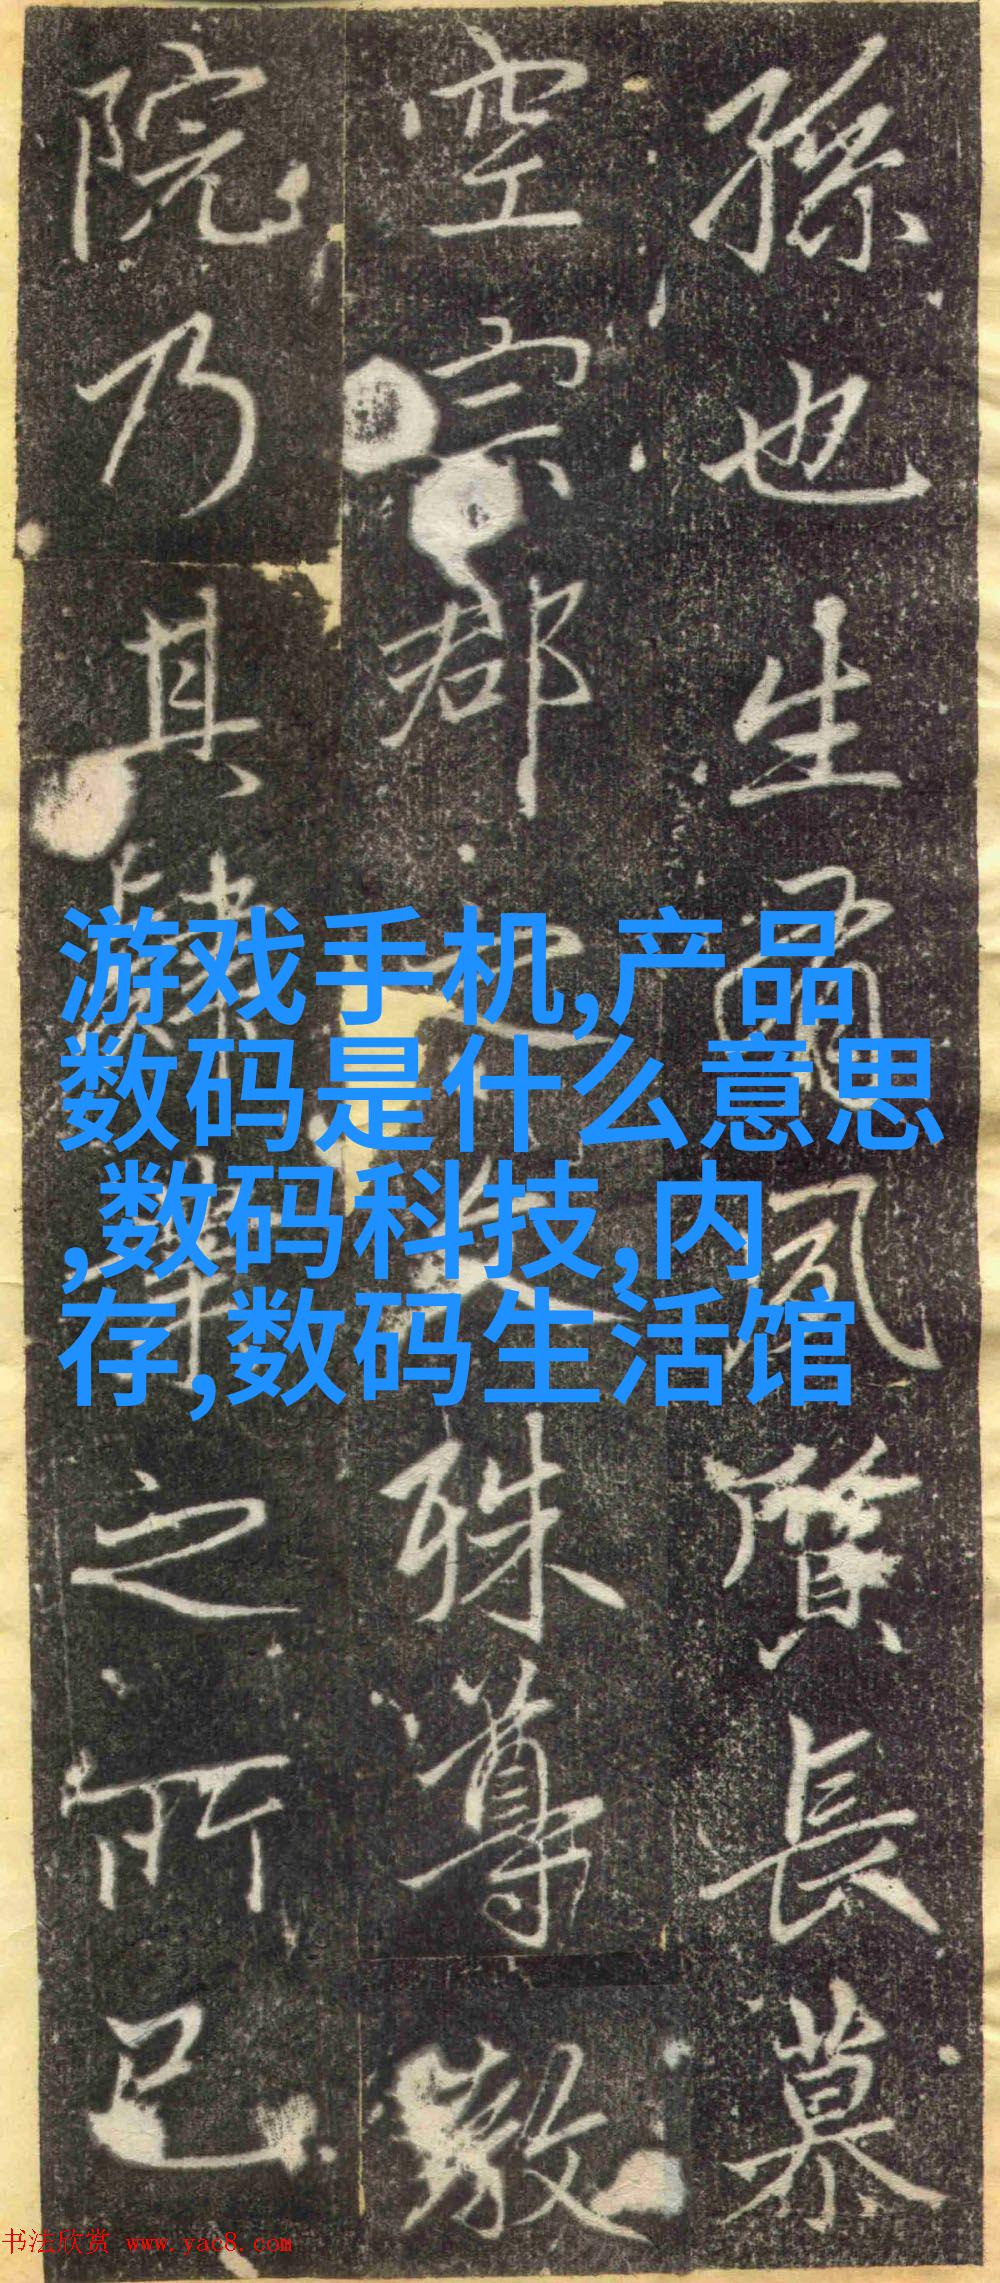 孫也生風質長慕
空宗郡之殊尊敬
院乃其肆筆之所已
游戏手机,产品
数码是什么意思
,数码科技,内
存,数码生活馆
书法欣赏 www.yac8.com